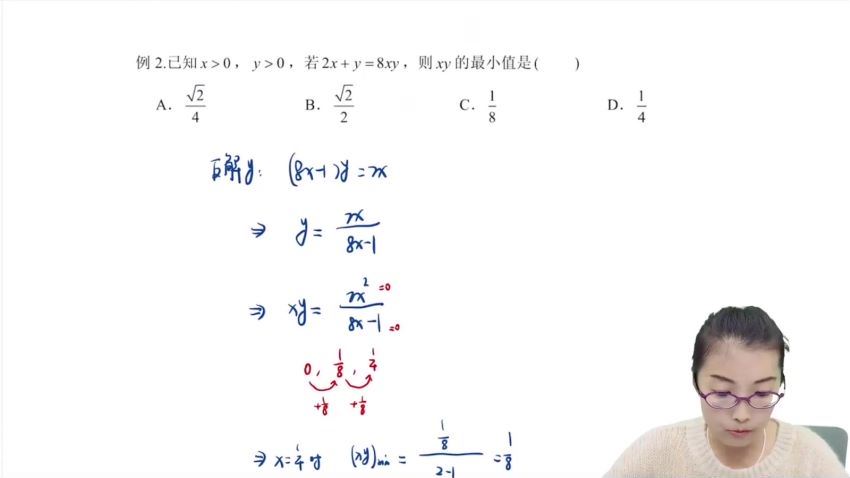 例 2.已知 x > 0 ， y > 0 ，若 2x + y = 8xy ，则 xy 的最小值是 (　　)
A. √2/4　B. √2/2　C. 1/8　D. 1/4
反解y: (8x-1)y = 2x
⇒ y = 2x/(8x-1)
⇒ xy = 2x²/(8x-1) =0 =0
0, 1/8, 1/4
+1/8 +1/8
⇒ x=1/4 时 (xy)min = (1/8)/(2-1) = 1/8